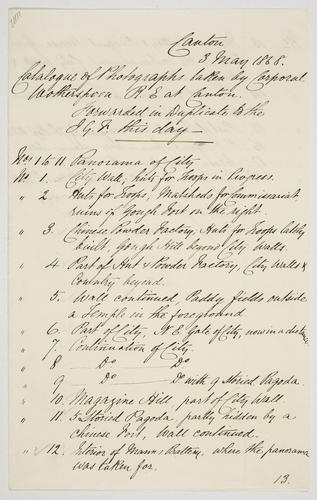 Canton
3 May 1868.
Catalogue of Photographs taken by Corporal
Wotherspoon R.E at Canton.
Forwarded in Duplicate to the
I G F this day —
Nos 1 to 11. Panorama of City
No 1. City Wall, huts for Troops in Progress.
" 2 Huts for Troops, Matsheds for Commissariat,
ruins of Gough Fort on the right.
" 3. Chinese Powder Factory, Huts for Troops lately
built, Gough Hill beyond City Walls.
" 4 Part of Hut & Powder Factory, City Walls &
Country beyond.
" 5. Wall continued, Paddy fields outside
a Temple in the foreground
" 6. Part of City, N.E. Gate of City, now in a distance
" 7. Continuation of City.
" 8 Do Do
" 9 Do Do with 9 Storied Pagoda.
" 10. Magazine Hill, part of City Wall
" 11. 5 Storied Pagoda, partly hidden by a
Chinese Fort, Wall continued.
" 12. Interior of Manns Battery, where the panorama
was taken for.
13.